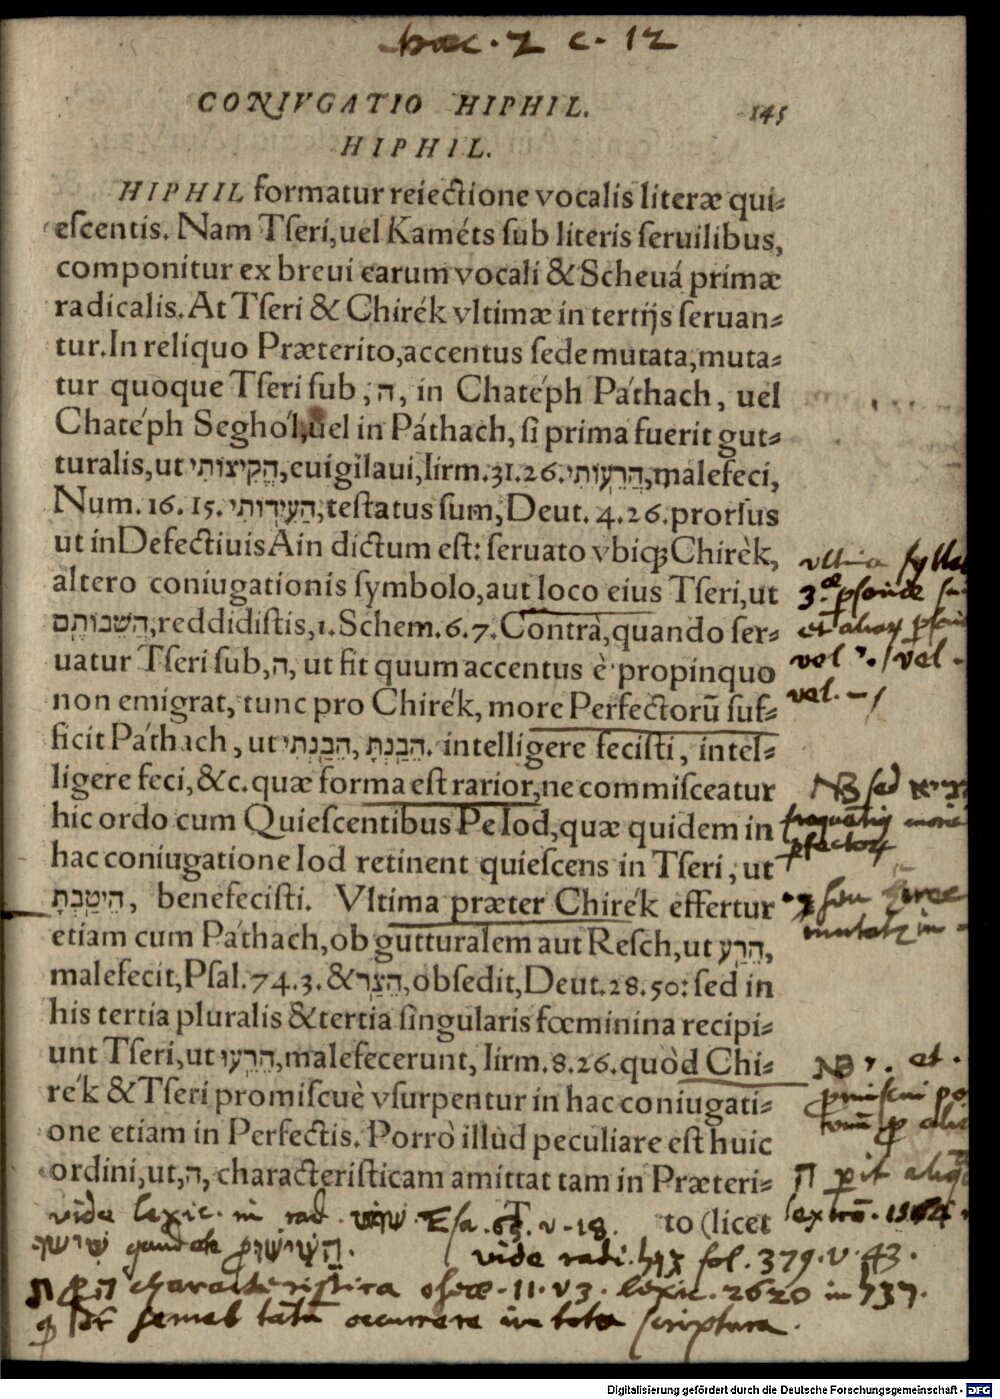 hac. 2 c. 12
CONIVGATIO HIPHIL. 145
HIPHIL.
HIPHIL formatur reiectione vocalis literæ qui=
eſcentis. Nam Tſeri, uel Kaméts ſub literis ſeruilibus,
componitur ex breui earum vocali & Scheuá primæ
radicalis. At Tſeri & Chirék vltimæ in tertijs ſeruan=
tur. In reliquo Præterito, accentus ſede mutata, muta=
tur quoque Tſeri ſub, ה, in Chatéph Páthach, uel
Chatéph Seghól, uel in Páthach, ſi prima fuerit gut=
turalis, ut הֱקִיצוֹתִי, euigilaui, Iirm. 31. 26. הֲרֵעוֹתִי, malefeci,
Num. 16. 15. הַעִידוֹתִי, teſtatus ſum, Deut. 4. 26. prorſus
ut in Defectiuis Ain dictum eſt: ſeruato vbiqꝫ Chirèk,
altero coniugationis ſymbolo, aut loco eius Tſeri, ut
הֲשֵׁבוֹתֶם, reddidiſtis, 1. Schem. 6. 7. Contrà, quando ſer=
uatur Tſeri ſub, ה, ut fit quum accentus è propinquo
non emigrat, tunc pro Chirék, more Perfectorũ ſuf=
ficit Páthach, ut הֵבַנְתָּ, הֵבַנְתִּי. intelligere feciſti, intel=
ligere feci, &c. quæ forma eſt rarior, ne commiſceatur
hic ordo cum Quieſcentibus Pe Iod, quæ quidem in
hac coniugatione Iod retinent quieſcens in Tſeri, ut
הֵיטַבְתָּ, benefeciſti. Vltima præter Chirék effertur
etiam cum Páthach, ob gutturalem aut Reſch, ut הֵרַע,
malefecit, Pſal. 74. 3. & הֵצַר, obſedit, Deut. 28. 50: ſed in
his tertia pluralis & tertia ſingularis fœminina recipi=
unt Tſeri, ut הֵרֵעוּ, malefecerunt, Iirm. 8. 26. quòd Chi=
rék & Tſeri promiſcuè vſurpentur in hac coniugati=
one etiam in Perfectis. Porrò illud peculiare eſt huic
ordini, ut, ה, characteriſticam amittat tam in Præteri=
to (licet
vltima ſyllab
3.æ pſonæ
et aliar
vel . / vel .
vel. - /
NB ſed
more
pfector
mutat in
NB . et .
ה pit aliq
vide lexic. in rad. שוש Eſa. v. 18.
gaudete
vide radi. fol. 379. v. 43.
ה characteriſtica oſeæ. 11. v 3. lexic. 2620 in
ſemel tātū occurrere in tota ſcriptura.